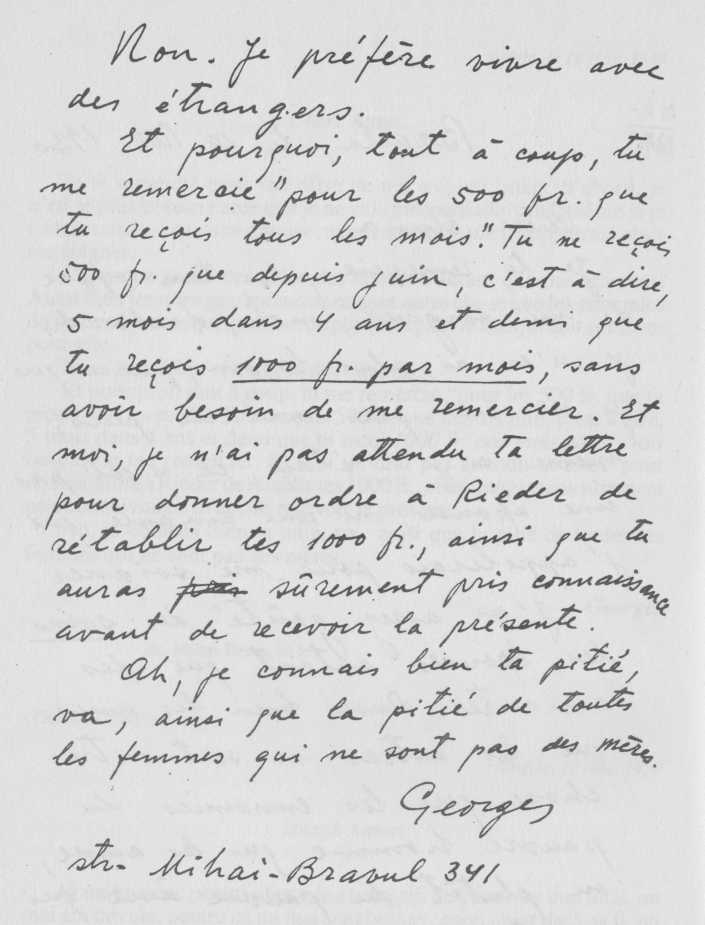 Non. Je préfère vivre avec
des étrangers.
Et pourquoi, tout à coup, tu
me remercie "pour les 500 fr. que
tu reçois tous les mois". Tu ne reçois
500 fr. que depuis juin c'est à dire,
5 mois dans 4 ans et demi que
tu reçois 1000 fr. par mois, sans
avoir besoin de me remercier. Et
moi, je n'ai pas attendu ta lettre
pour donner ordre à Rieder de
rétablir tes 1000 fr., ainsi que tu
auras pris sûrement pris connaissance
avant de recevoir la présente.
Ah, je connais bien ta pitié,
va, ainsi que la pitié de toutes
les femmes qui ne sont pas des mères.
Georges
str. Mihai-Bravul 341